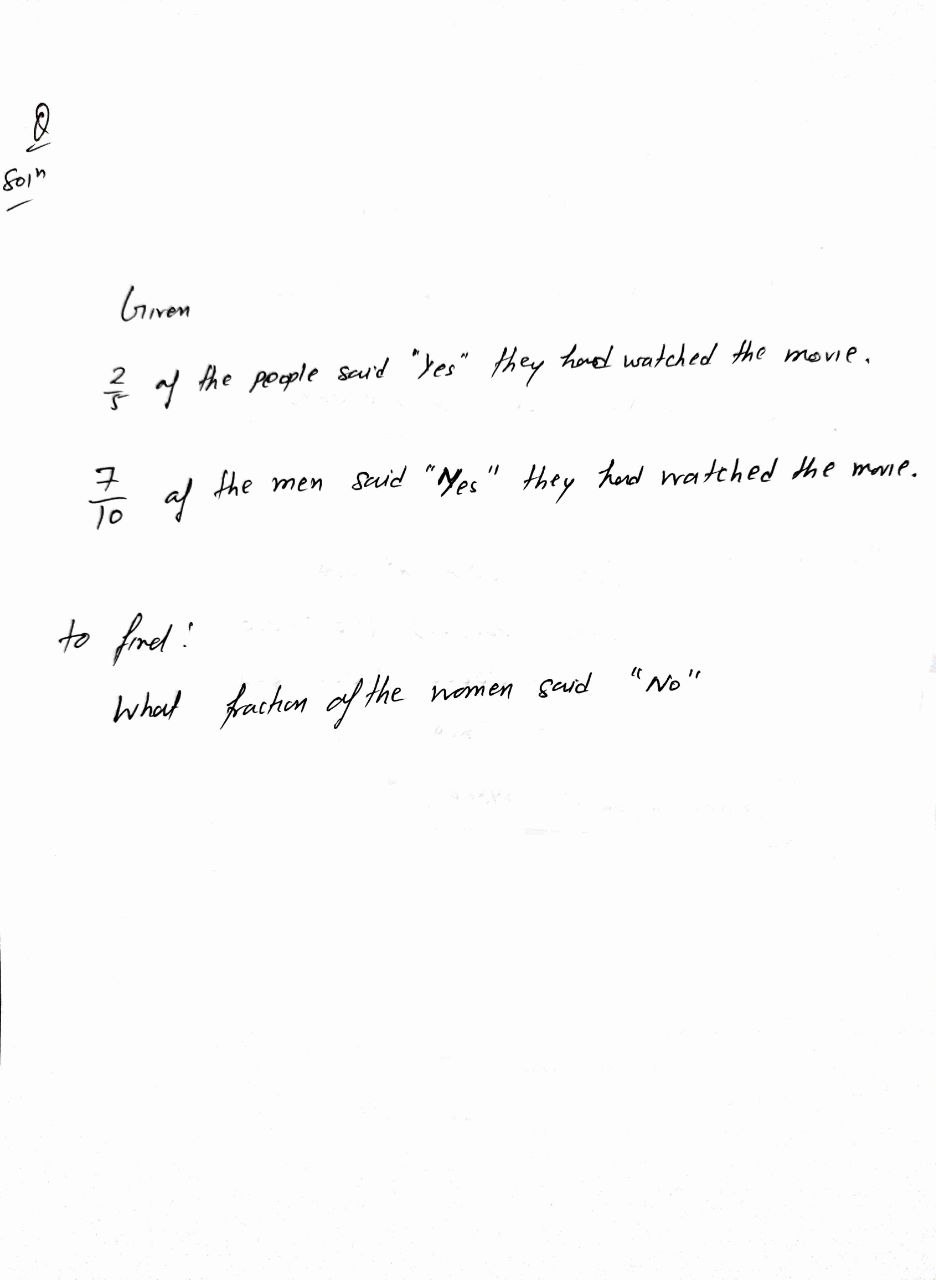 Q
Soln
Given
2/5 of the people said "Yes" they had watched the movie.
7/10 of the men said "Yes" they had watched the movie.
to find:
What fraction of the women said "No"